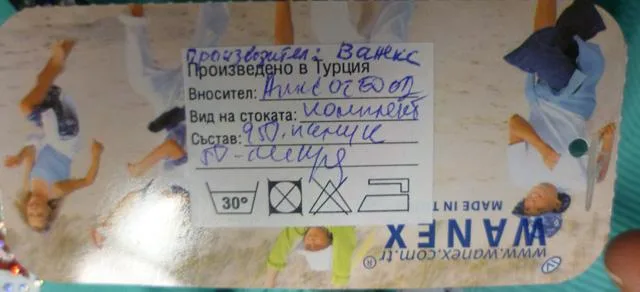 Производител: Ванекс
Произведено в Турция
Вносител:
Вид на стоката: комплект
Състав: 95% памук
5% ликра
30°
WANEX
MADE IN T
www.wanex.com.tr
®